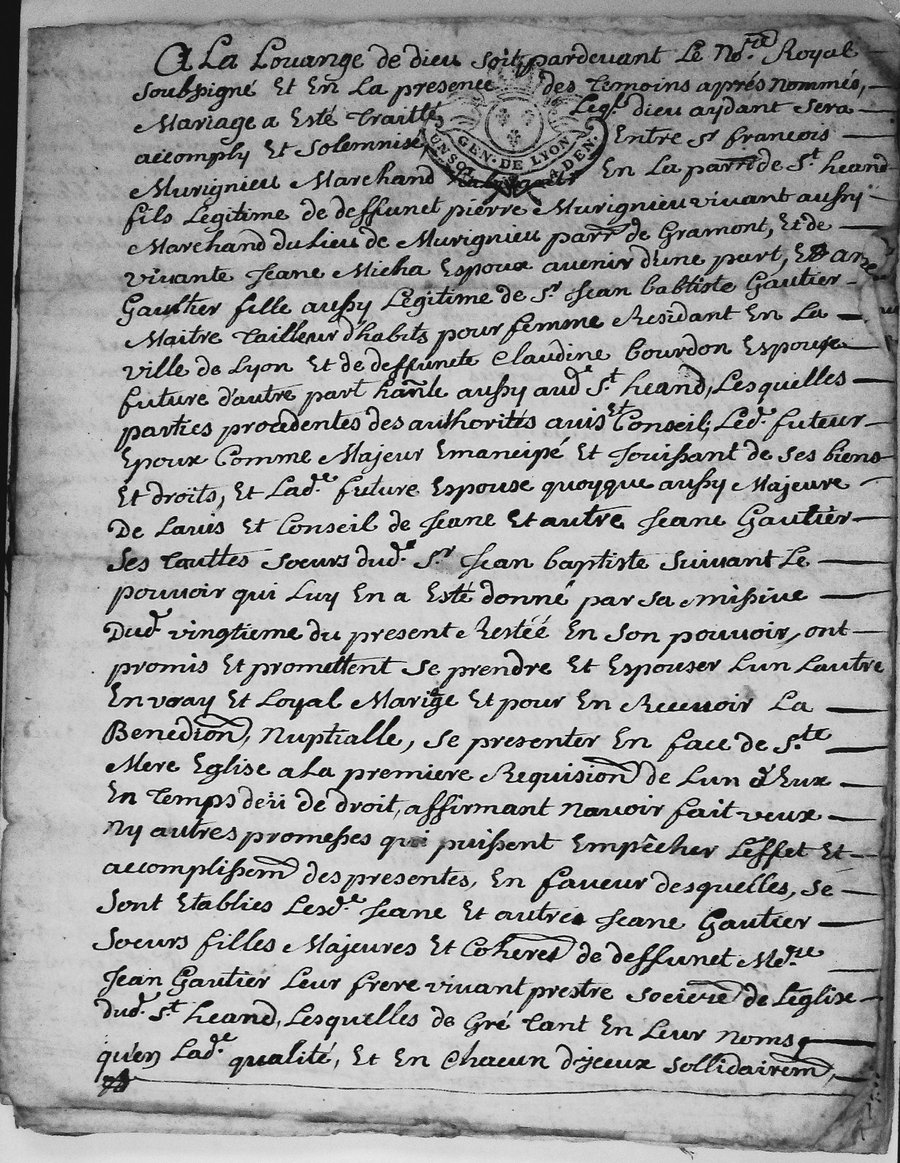 A La Louange de dieu soit, pardevant Le No.re Royal
soubsigné Et En La presence des temoins aprés nommés,
Mariage a Esté traitté, Leq.l dieu aydant sera
accomply Et solemnisé Entre S.r francois
GEN. DE LYON
Murignieu Marchand En La parr. de S.t heand
fils Legitime de deffunct pierre Murignieu vivant aussy
Marchand du Lieu de Murignieu parr. de Gramont, Et de
vivante Jeane Micha Espoux avenir d'une part, Et
Gautier fille aussy Legitime de S.r Jean baptiste Gautier
Maitre tailleur d'habits pour femme Residant En La
ville de Lyon Et de deffuncte Claudine bourdon Espouse
future d'autre part han.te aussy aud. S.t heand, Lesquelles
parties procedentes des authorités avis Et Conseil, Led. futeur
Epoux Comme Majeur Emancipé Et Jouissant de ses biens
Et droits, Et Lad.e future Espouse quoyque aussy Majeure
De Lavis Et Conseil de Jeane Et autre Jeane Gautier
Ses tanttes soeurs dud. S.r Jean baptiste suivant Le
pouvoir qui Luy En a Esté donné par sa missive
Dud. vingtieme du present Restéé En son pouvoir, ont
promis Et promettent se prendre Et Espouser Lun Lautre
En vray Et Loyal Mariage Et pour En Recevoir La
Benedion, Nuptialle, se presenter En face de S.te
Mere Eglise a La premiere Requision de Lun d'Eux
En temps deü de droit, affirmant navoir fait veux
ny autres promesses qui puissent Empêcher L'effet Et
accomplissem des presentes, En faveur desquelles, se
sont Etablies Lesd.e Jeane Et autre Jeane Gautier
Soeurs filles Majeures Et Coheres de deffunct Me.re
Jean Gautier Leur frere vivant prestre societre de L'eglise
dud. S.t heand, Lesquelles de Gré tant En Leur noms
qu'en Lad.e qualité, Et En Chacun d'jceux sollidairem,